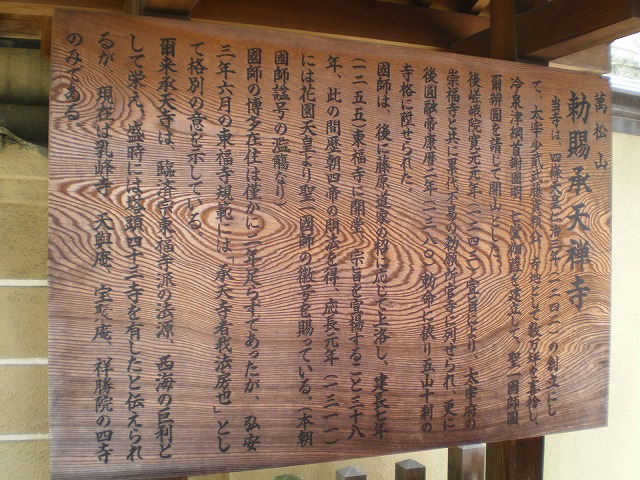 萬松山
勅賜承天禅寺
当寺は、四條天皇仁治三年(一二四二)の創立にし
て、太宰少貳武藤資頼公、寺地として数万坪を喜捨し、
冷泉津綱首謝國明、七堂伽藍を建立して、聖一國師圓
爾辨圓を請じて開山とした。
後嵯峨院寛元元年(一二四三)官旨により、太宰府の
崇福寺と共に累代不易の勅願所官寺に列せられ、更に
後圓融帝康暦二年(一三八〇)勅命に依り五山十刹の
寺格に陞せられた。
國師は、後に藤原道家の招に応じて上洛し、建長七年
(一二五五)東福寺に開堂、宗旨を宣揚すること三十八
年、此の間歴朝四帝の問法を得、応長元年(一三一一)
には花園天皇より聖一國師の徽号を賜っている。(本朝
國師諡号の濫觴なり)
國師の博多在住は僅かに二年足らずであったが、弘安
三年六月の東福寺規範には、「承天寺者我法房也」とし
て格別の意を示している。
爾来承天寺は、臨済宗東福寺派の法源、西海の巨刹と
して栄え、盛時には塔頭四十三寺を有したと伝えられ
るが、現在は乳峰寺、天與庵、宝聚庵、祥勝院の四寺
のみである。